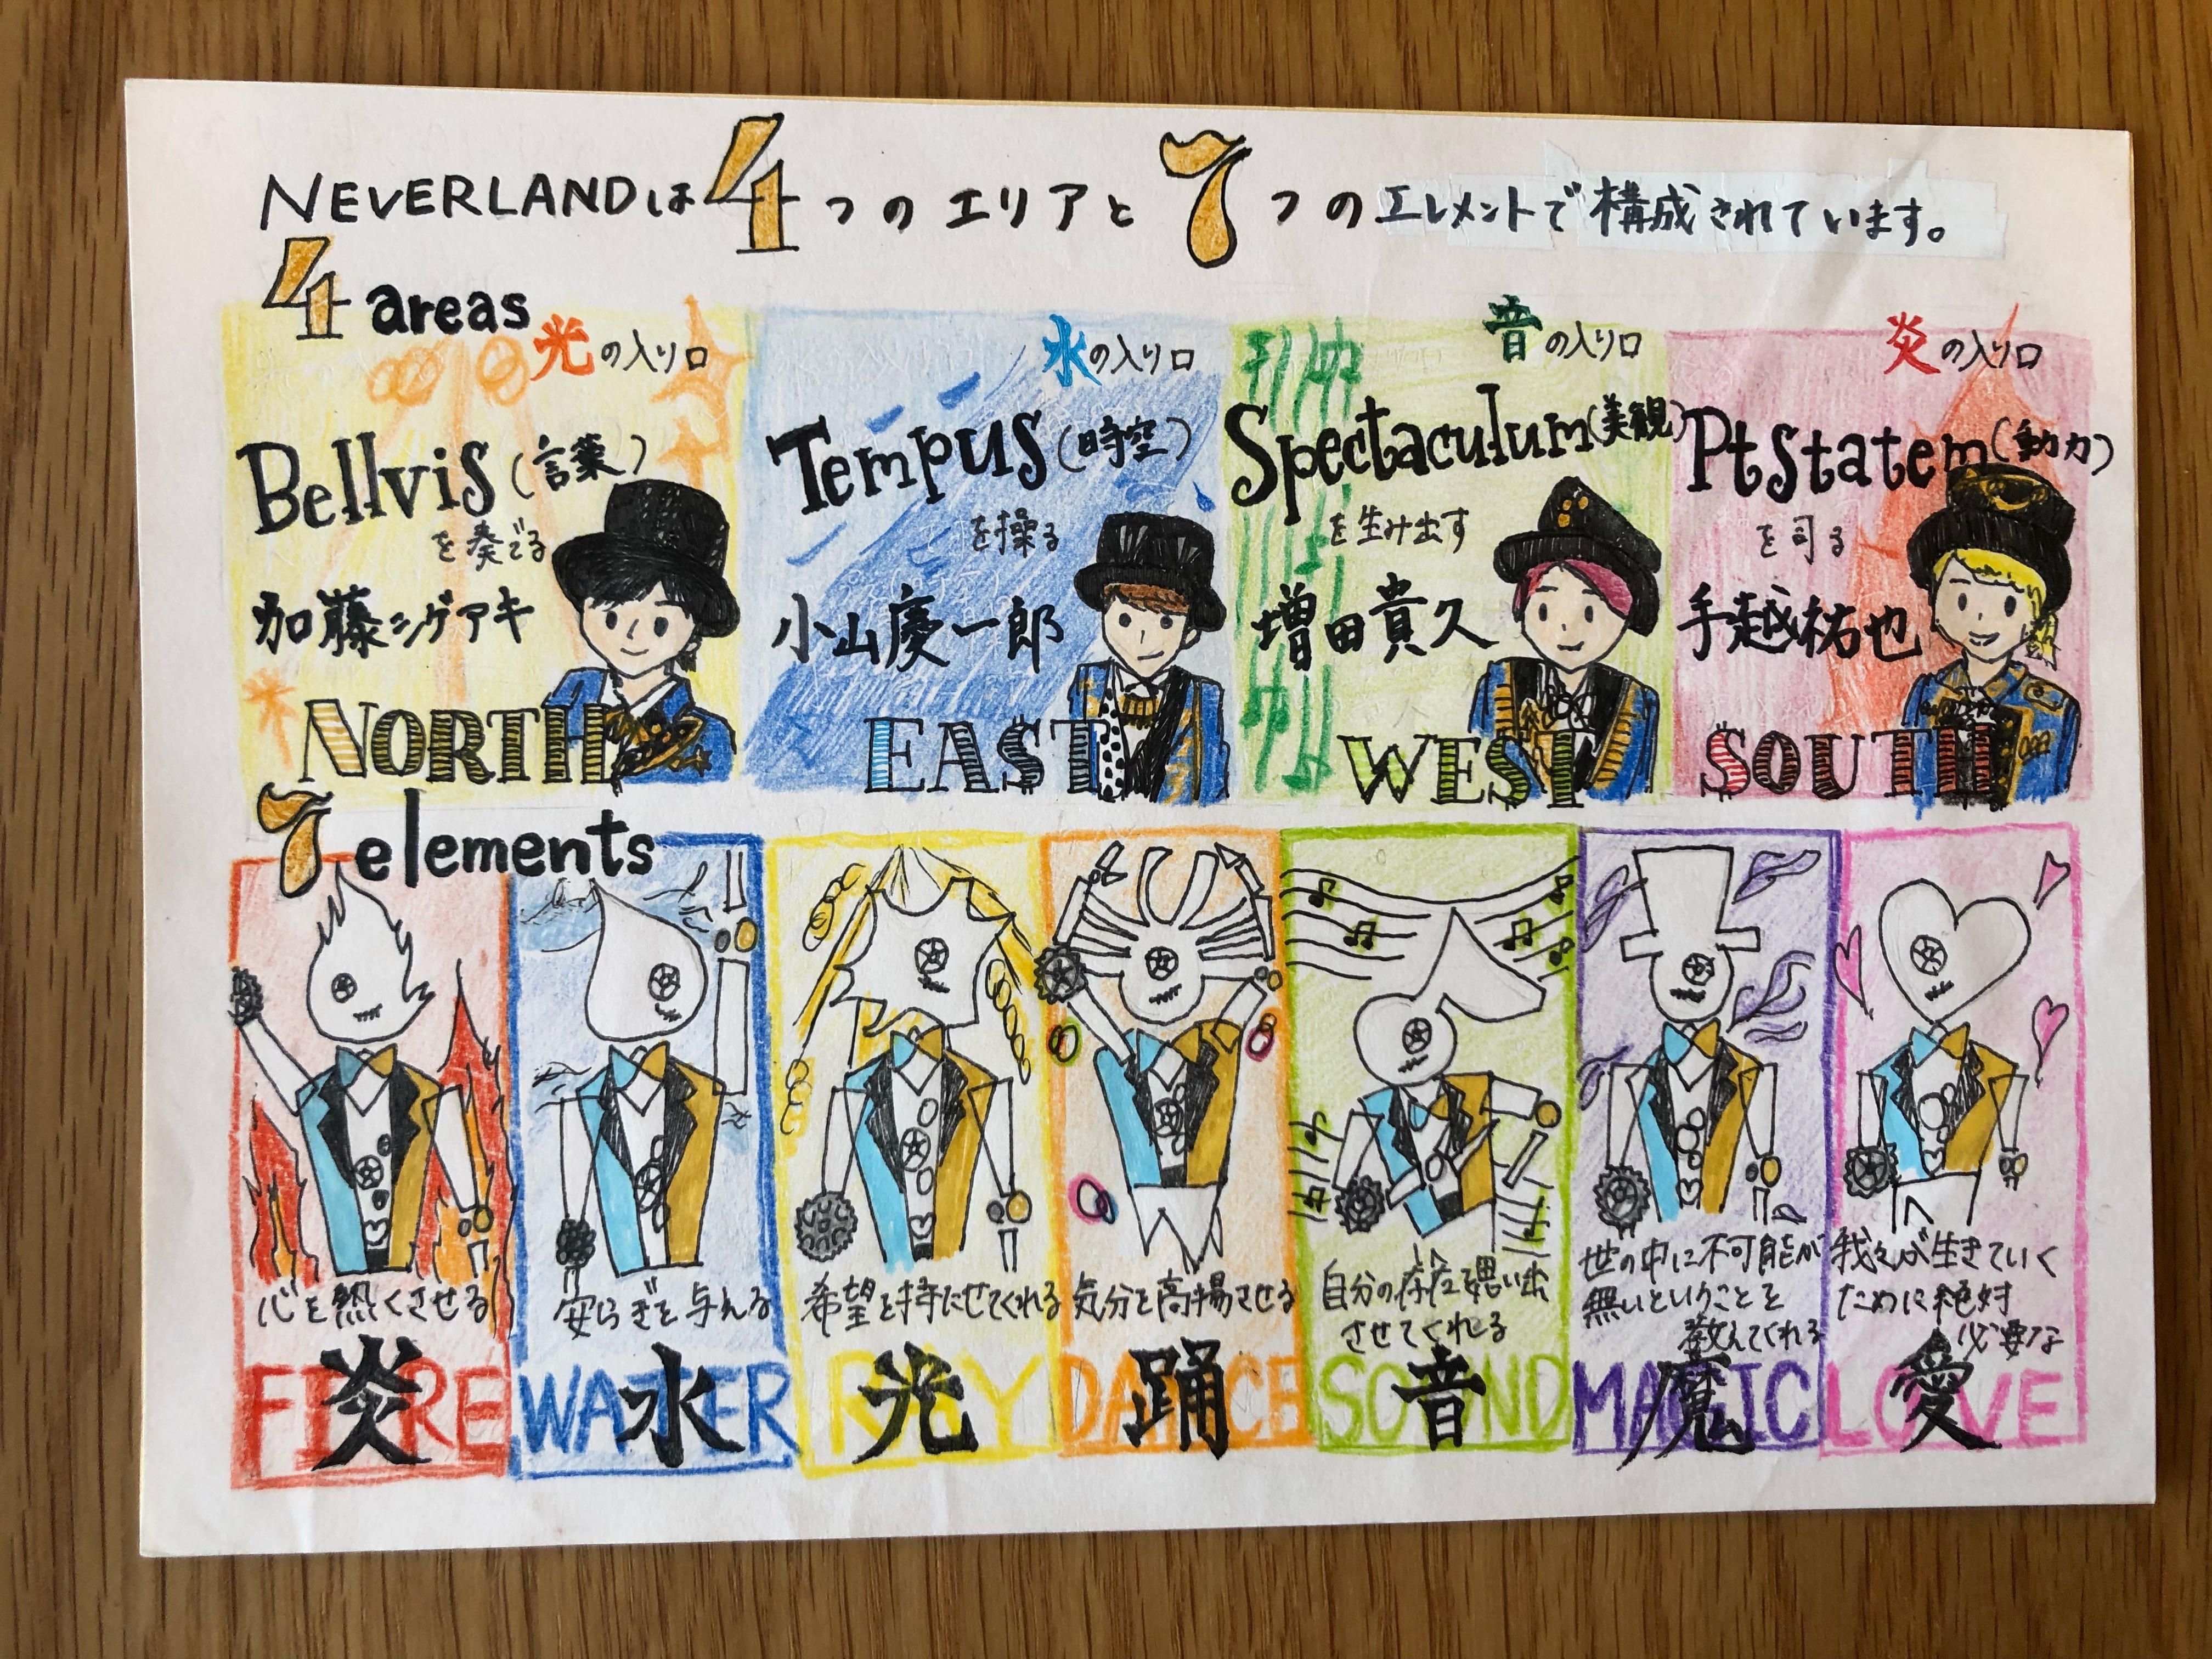 NEVERLANDは4つのエリアと7つのエレメントで構成されています。
4 areas
光の入り口
Bellvis(言葉)
を奏でる
加藤シゲアキ
NORTH
水の入り口
Tempus(時空)
を操る
小山慶一郎
EAST
音の入り口
Spectaculum(美観)
を生み出す
増田貴久
WEST
炎の入り口
Ptstatem(動力)
を司る
手越祐也
SOUTH
7 elements
心を熱くさせる
FIRE
炎
安らぎを与える
WATER
水
希望を持たせてくれる
RAY
光
気分を高揚させる
DANCE
踊
自分の存在を思い出
させてくれる
SOUND
音
世の中に不可能が
無いということを
教えてくれる
MAGIC
魔
我々が生きていく
ために絶対
必要な
LOVE
愛